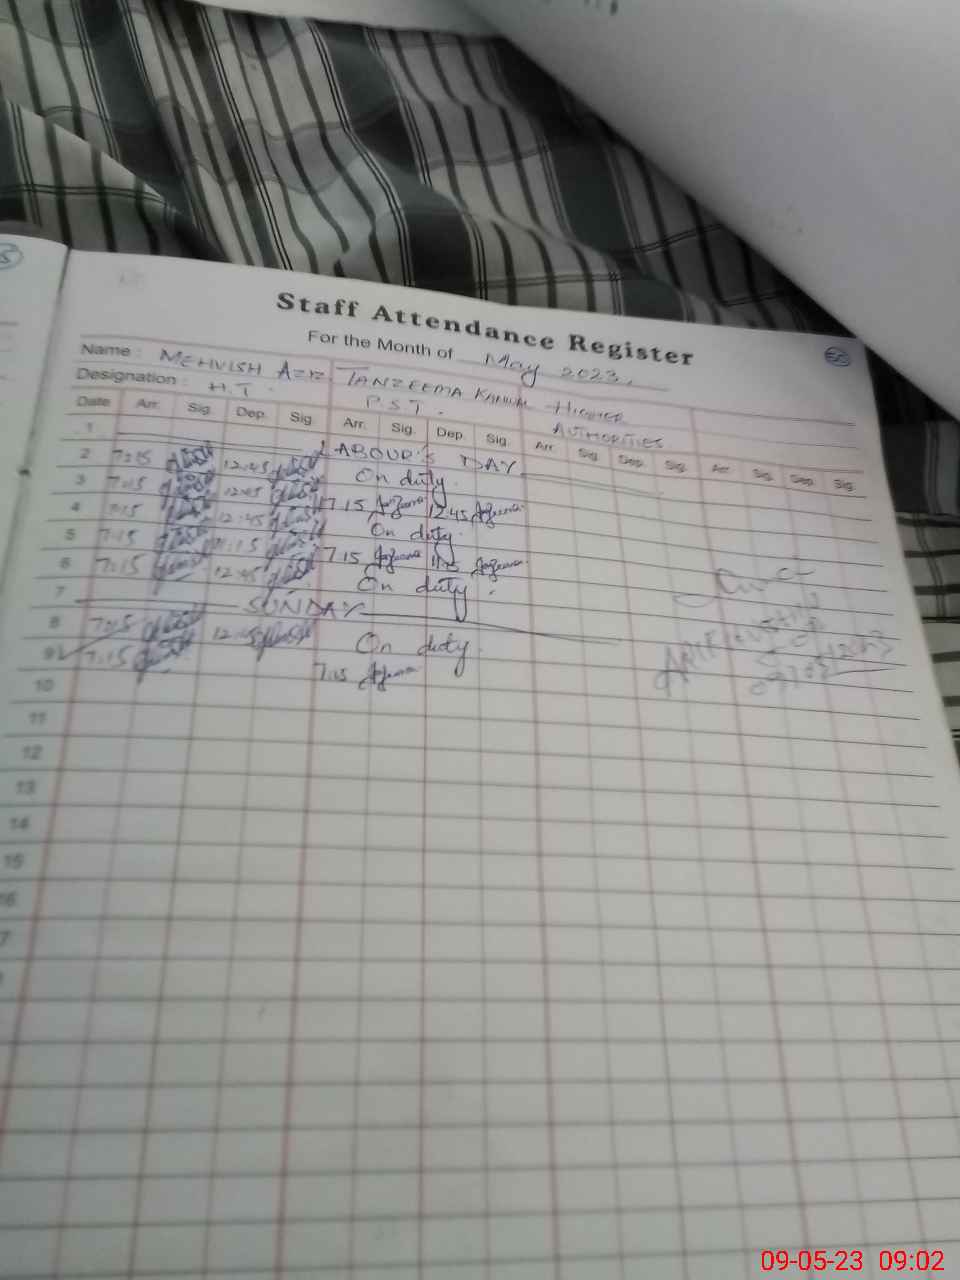 Staff Attendance Register
For the Month of May 2023.
50
Name : MEHVISH AZIZ TANZEEMA KANWAL HIGHER
Designation : H.T. P.S.T. AUTHORITIES
Date Arr. Sig. Dep. Sig. Arr. Sig. Dep. Sig. Arr. Sig. Dep. Sig. Arr. Sig. Dep. Sig.
1 LABOUR'S DAY
2 7:15 12:45 On duty.
3 7:15 12:45 7.15 12.45
4 7:15 12:45 On duty.
5 7:15 11:15 7.15 11.15
6 7:15 12:45 On duty.
7 SUNDAY
8 7:15 12:45 On duty.
9 7:15 7.15
10
11
12
13
14
15
16
7
09-05-23 09:02